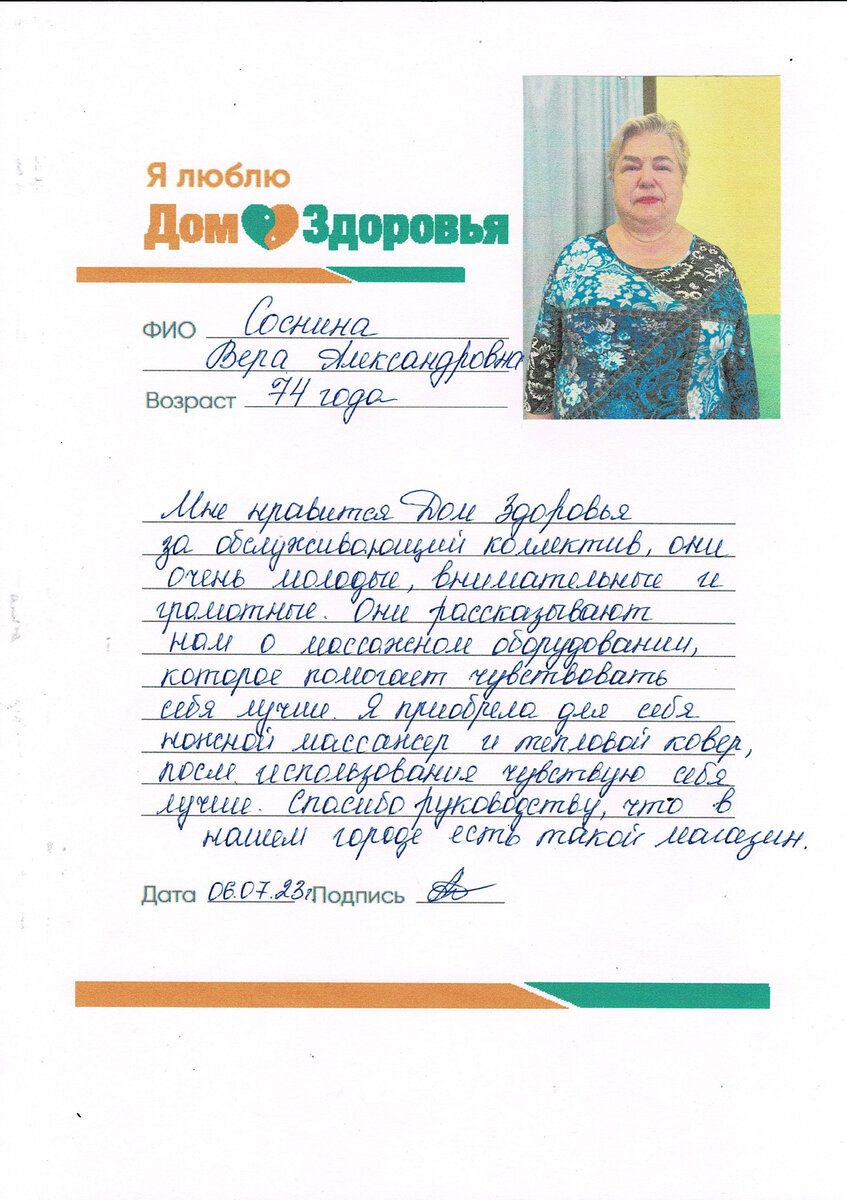 Я люблю
Дом Здоровья
ФИО Соснина
Вера Александровна
Возраст 74 года
Мне нравится Дом Здоровья
за обслуживающий коллектив, они
очень молодые, внимательные и
грамотные. Они рассказывают
нам о массажном оборудовании,
которое помогает чувствовать
себя лучше. Я приобрела для себя
ножной массажер и тепловой ковер,
после использования чувствую себя
лучше. Спасибо руководству, что в
нашем городе есть такой магазин.
Дата 06.07.23г. Подпись